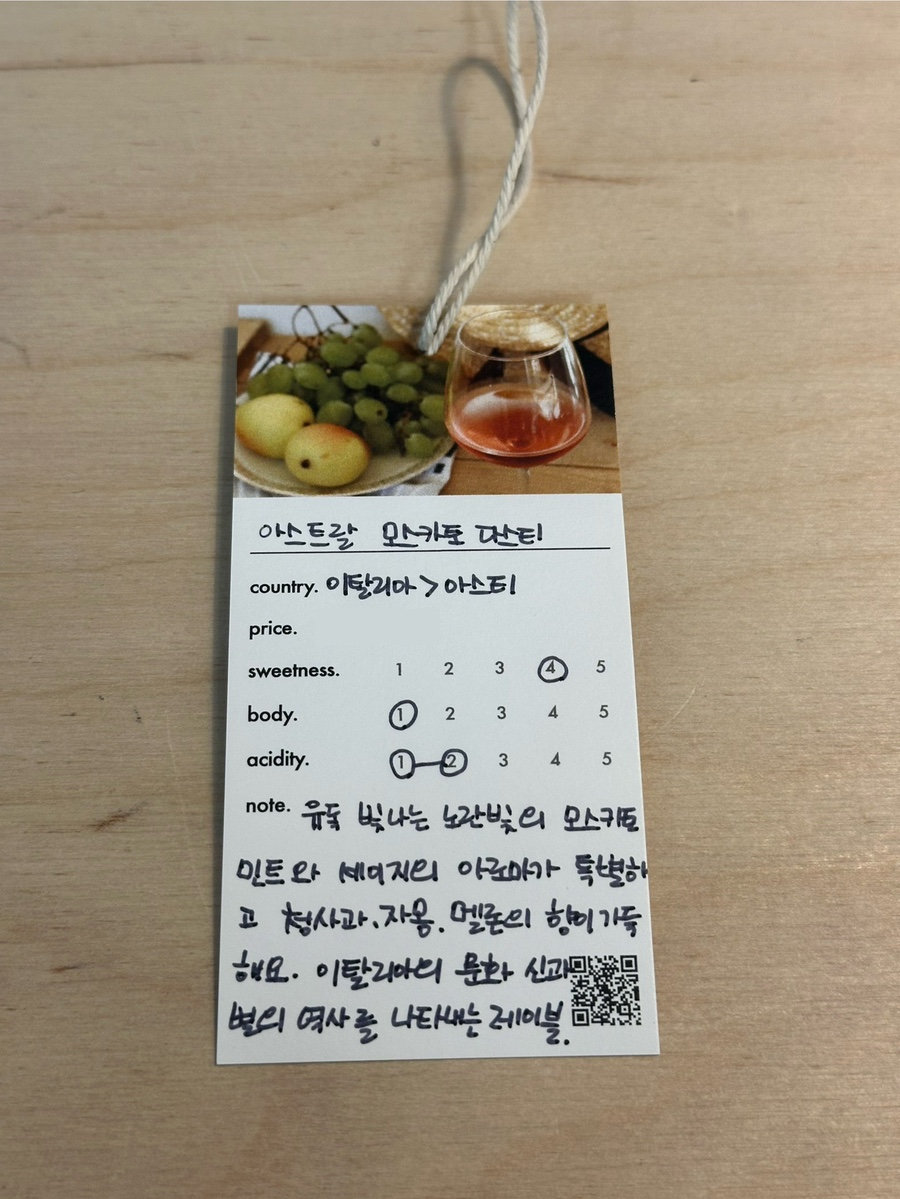 아스트랄 모스카토 다스티
country. 이탈리아 > 아스티
price.
sweetness. 1 2 3 4 5
body. 1 2 3 4 5
acidity. 1 2 3 4 5
note. 유독 빛나는 노란빛의 모스카토
민트와 세이지의 아로마가 특별하
고 청사과, 자몽, 멜론의 향이 가득
해요. 이탈리아의 문화 신과
별의 역사를 나타내는 레이블.